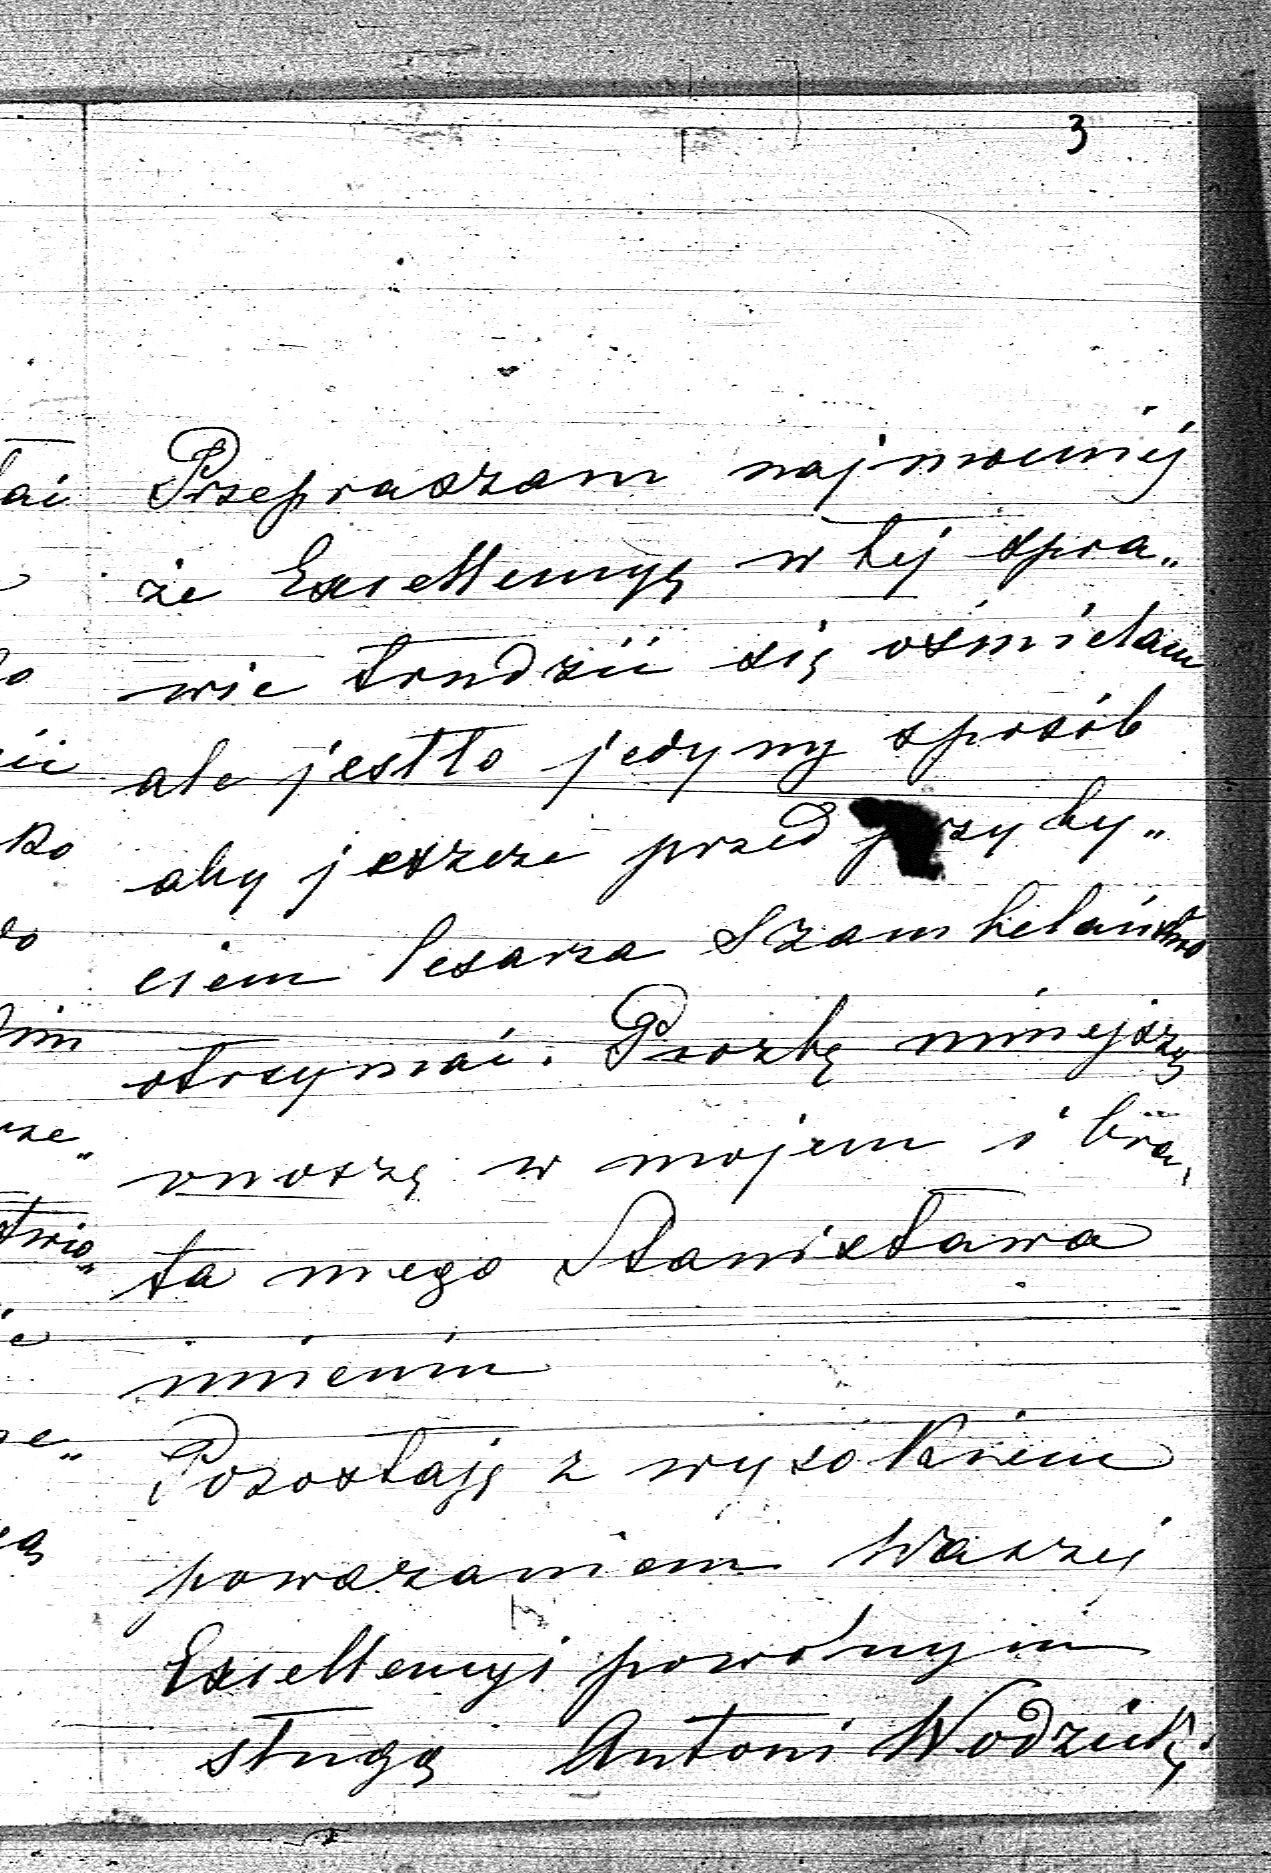 3
Przepraszam najmocniej
że Excellencyę w tej spra„
wie trudzić się ośmielam
ale jestto jedyny sposób
aby jeszcze przed przyby„
ciem Cesarza Szambelaństwo
otrzymać. Prozbę niniejszą
wnoszę w mojem i bra„
ta mego Stanisława
imieniu
Pozostaję z wysokiem
poważaniem Waszej
Excellencyi powolnym
sługą Antoni Wodzicki